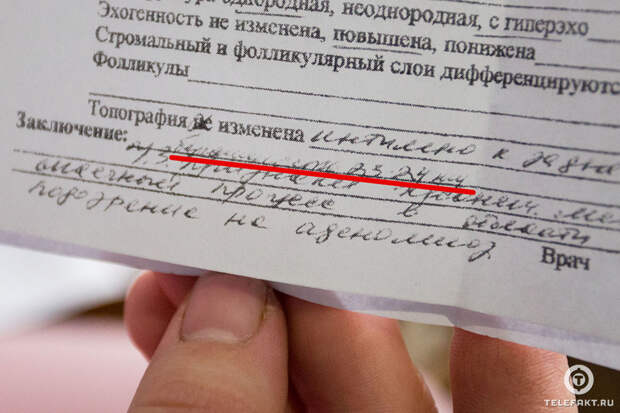 однородная, неоднородная, с гиперэхо
Эхогенность не изменена, повышена, понижена
Стромальный и фолликулярный слои дифференцируются
Фолликулы
Топография не изменена интимно к задне
Заключение:
УЗ признаки
процесс в области
подозрение на аденомиоз
Врач
TELEFAKT.RU